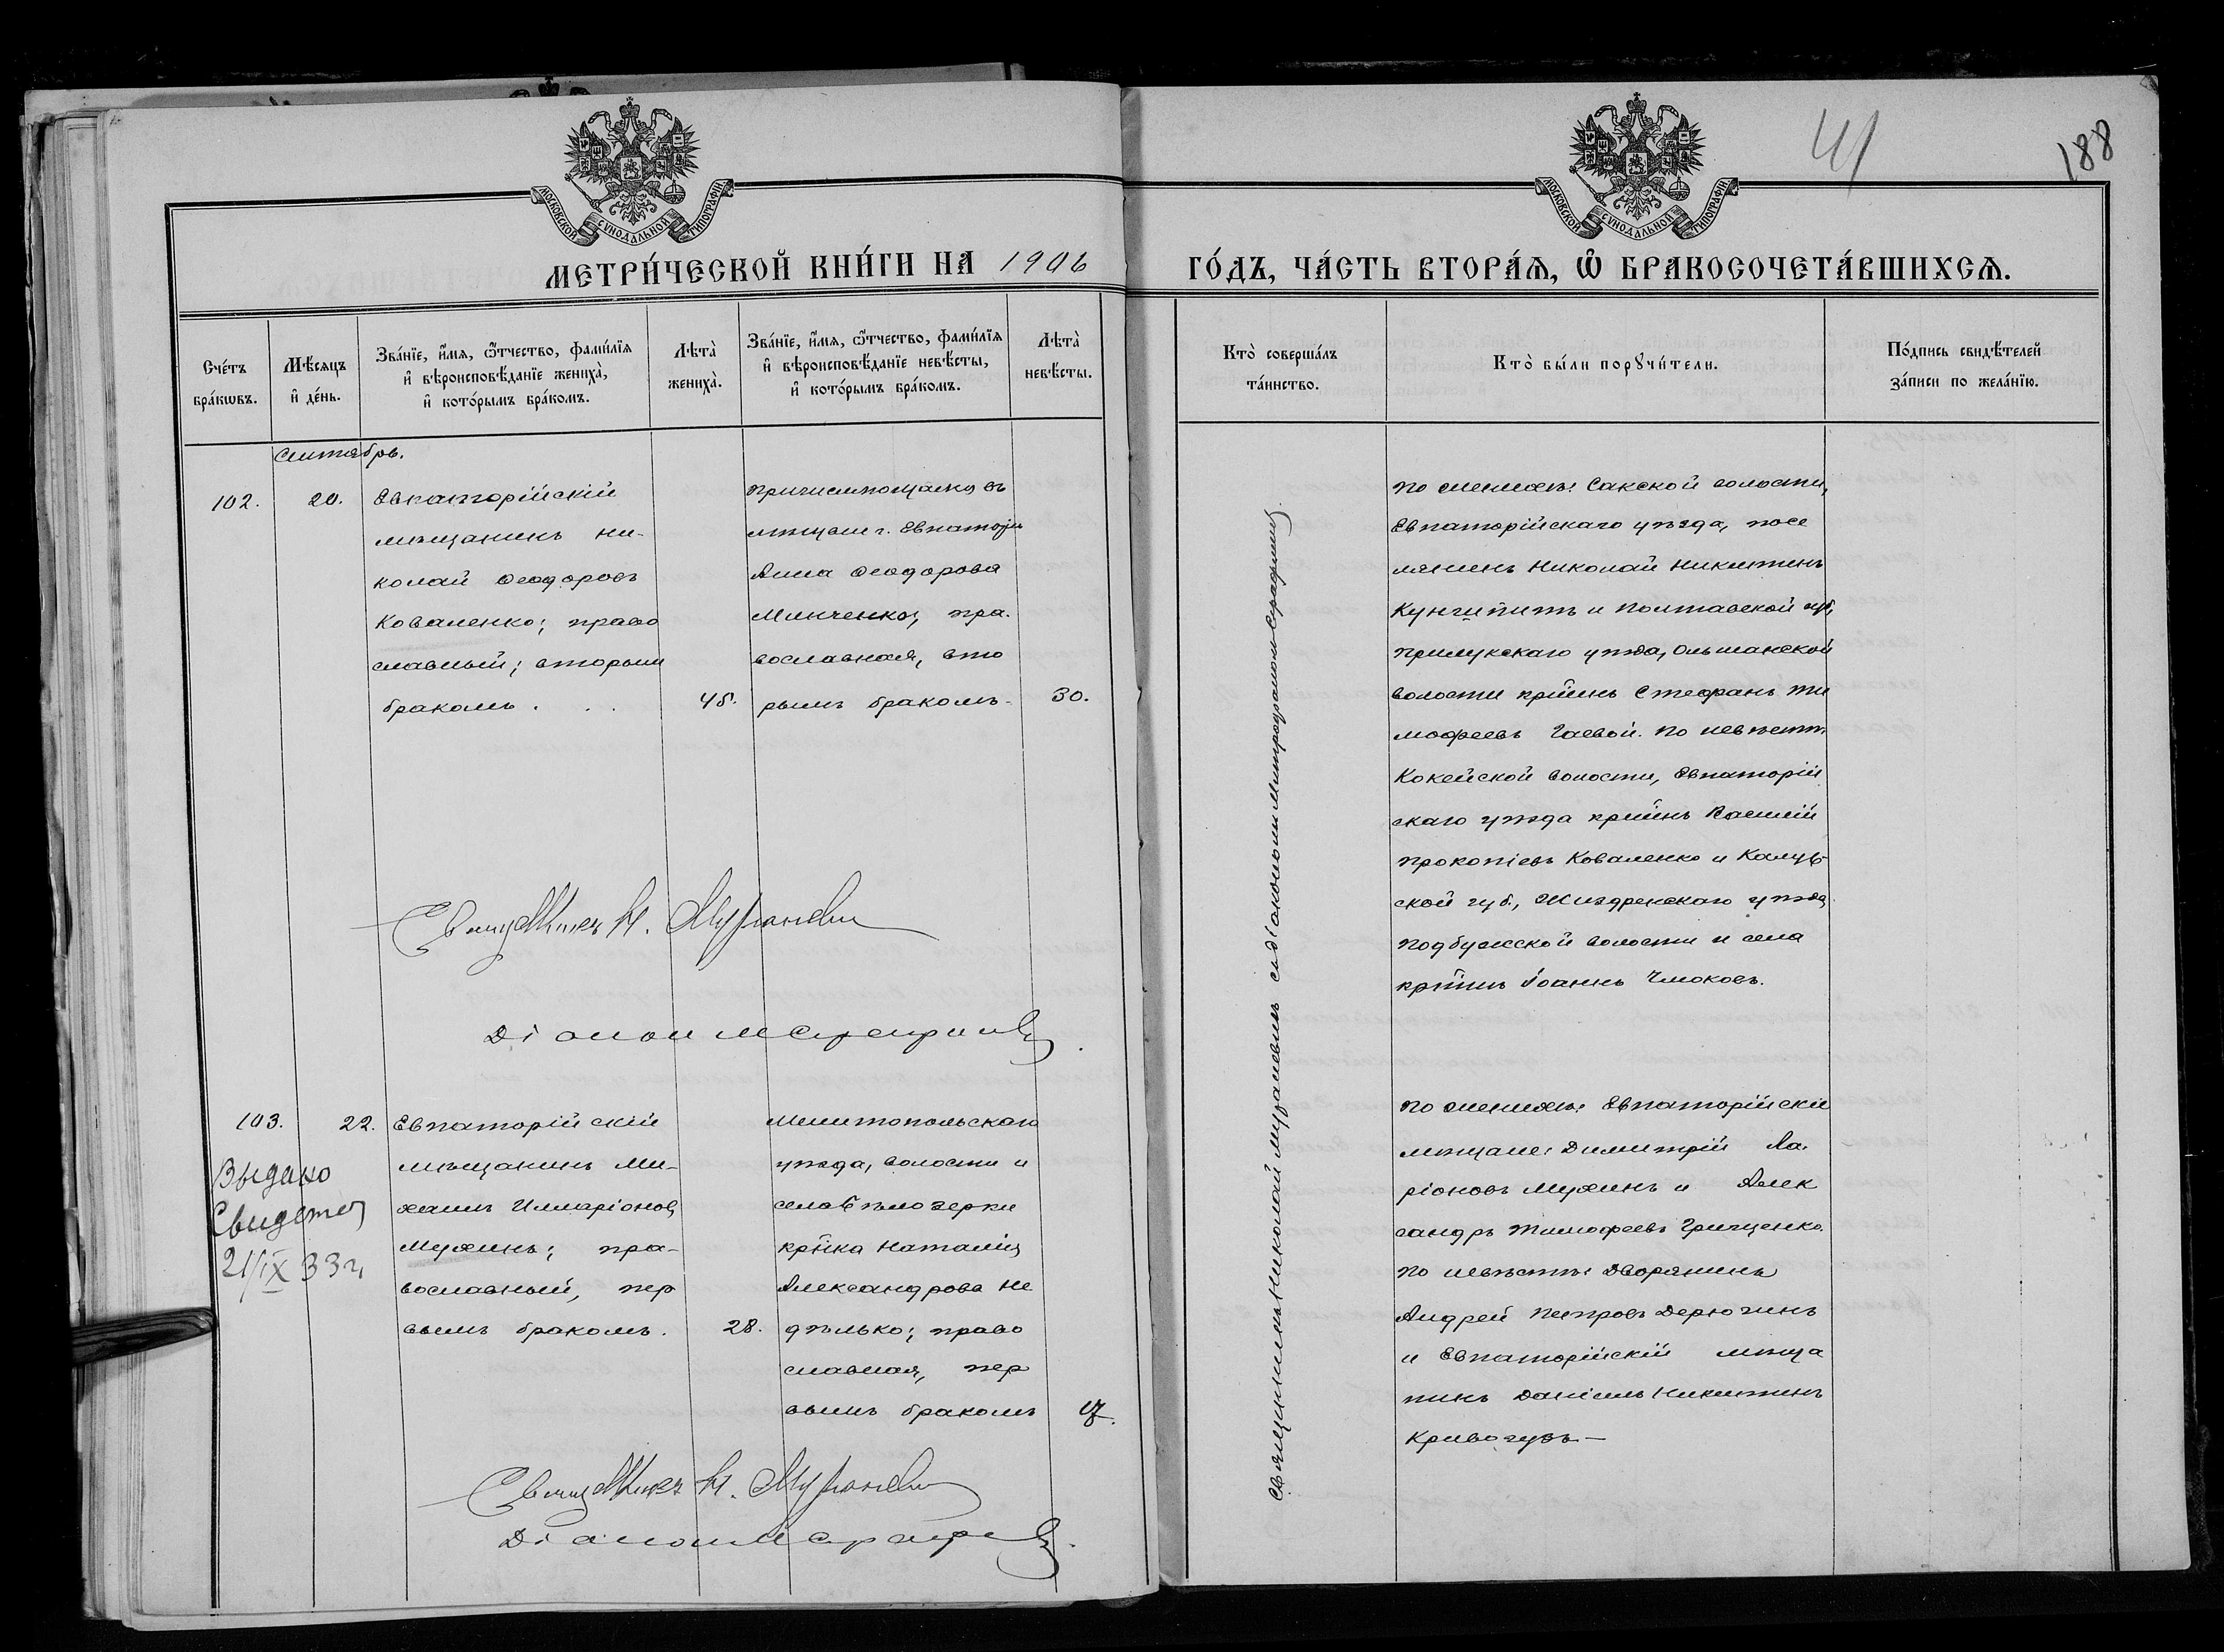 41
188
МОСКОВСКОЙ СѴНОДАЛЬНОЙ ТИПОГРАФІИ
МОСКОВСКОЙ СѴНОДАЛЬНОЙ ТИПОГРАФІИ
МЕТРИ́ЧЕСКОЙ КНИ́ГИ НА 1906
ГО́ДЪ, ЧА́СТЬ ВТОРА́Ѧ, Ѽ БРАКОСОЧЕТА́ВШИХСѦ.
Сче́тъ
бра́кѡвъ.
Мѣ́сяцъ
и҆ де́нь.
Зва́нїе, и҆́мѧ, ѻ҆́тчество, фами́лїѧ
и҆ вѣроисповѣ́данїе жениха̀,
и҆ кото́рымъ бра́комъ.
Лѣта̀
жениха̀.
Зва́нїе, и҆́мѧ, ѻ҆́тчество, фами́лїѧ
и҆ вѣроисповѣ́данїе невѣ́сты,
и҆ кото́рымъ бра́комъ.
Лѣта̀
невѣ́сты.
Кто̀ соверша́лъ
та́инство.
Кто̀ бы́ли порꙋчи́тели.
По́дпись свидѣ́телей
за́писи по жела́нїю.
Сентябрь.
102.
20.
Евпаторійскій
мѣщанинъ Ни-
колай Ѳеодоровъ
Коваленко; право
славный; вторымъ
бракомъ . . .
45.
мѣщане г. Евпаторіи
Анна Ѳеодорова
Минченко; пра.
вославная, вто
рымъ бракомъ.
30.
Священникъ Н. Мураневичъ
По женихѣ: Сакской волости,
Евпаторійскаго уѣзда, посе
лянинъ Николай Никитинъ
и Полтавской губ,
Прилукскаго уѣзда, Ольшанской
волости кр-инъ Стефанъ Ти
мофеевъ Гаевой. По невѣстѣ
Кокейской волости, Евпаторій
скаго уѣзда кр-инъ Василій
Прокопіевъ Коваленко и Калуж
ской губ., Жиздренскаго уѣзда,
Подбужской волости и села
кр-инъ Іоаннъ Чмоковъ.
103.
22.
Выдано
Свидетел
21/IX 33 г.
Евпаторійскій
мѣщанинъ Ми-
хаилъ Илларіоновъ
Мухинъ; пра-
вославный, пер
вымъ бракомъ.
28.
Мелитопольскаго
уѣзда, волости и
села Бѣлозерки
кр-нка Наталія
Александрова Не
дѣлько; право
славная, пер
вымъ бракомъ
17.
Священникъ Н. Мураневичъ
По женихѣ: Евпаторійскіе
мѣщане: Димитрій Ла.
ріоновъ Мухинъ и Алек
сандръ Тимофеевъ Грищенко.
По невѣстѣ: Дворянинъ
Андрей Петровъ Дерюгинъ
и Евпаторійскій мѣща
нинъ Даніилъ Никитинъ
Кривогузъ —
Священникъ Николай Мураневичъ съ діакономъ